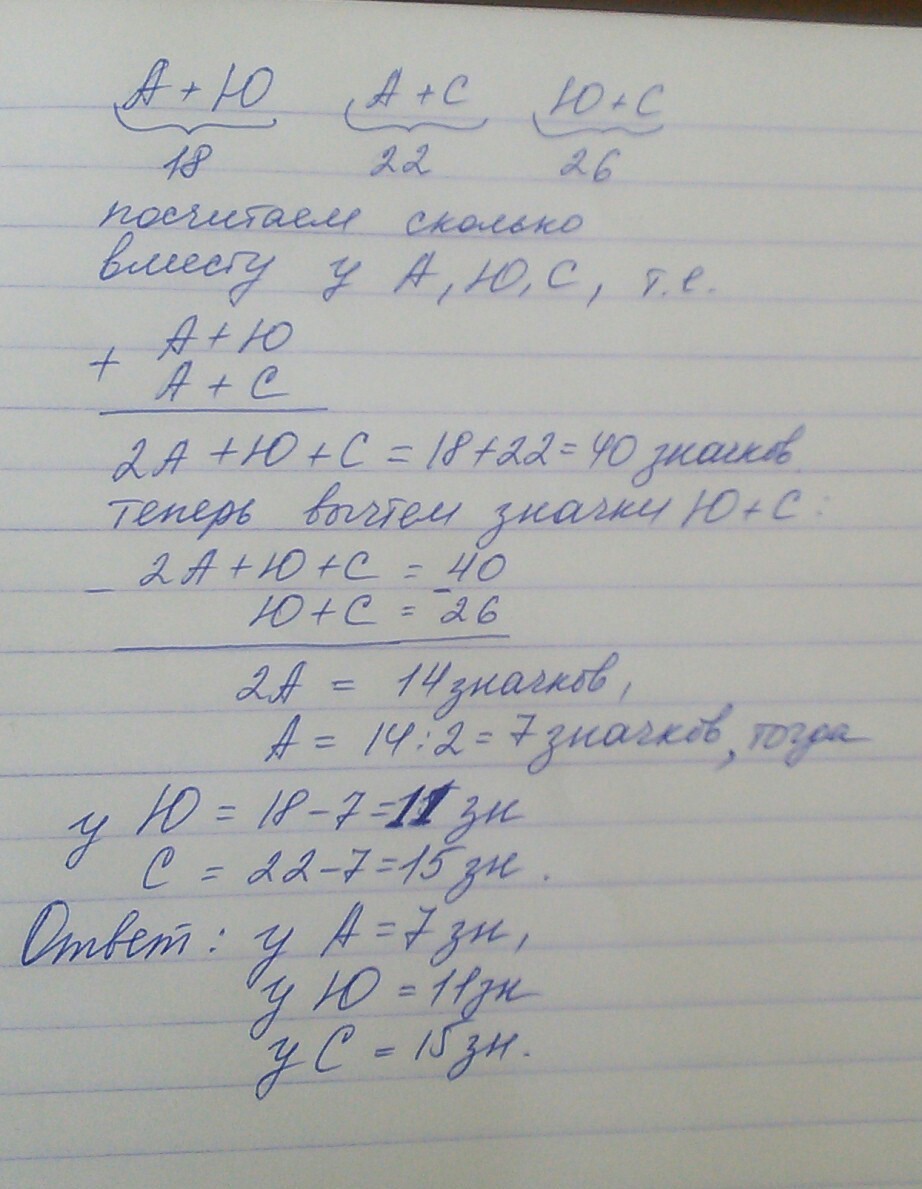 А + Ю А + С Ю + С
18 22 26
посчитаем сколько
вместу у А, Ю, С, т.е.
+ А + Ю
А + С
2А + Ю + С = 18 + 22 = 40 значков
теперь вычтем значки Ю + С :
- 2А + Ю + С = 40
Ю + С = - 26
2А = 14 значков,
А = 14 : 2 = 7 значков, тогда
у Ю = 18 - 7 = 11 зн
С = 22 - 7 = 15 зн.
Ответ : у А = 7 зн,
у Ю = 11 зн
у С = 15 зн.